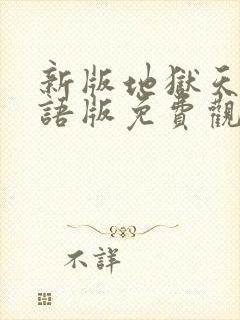 新版地獄天
語版免費觀
不詳